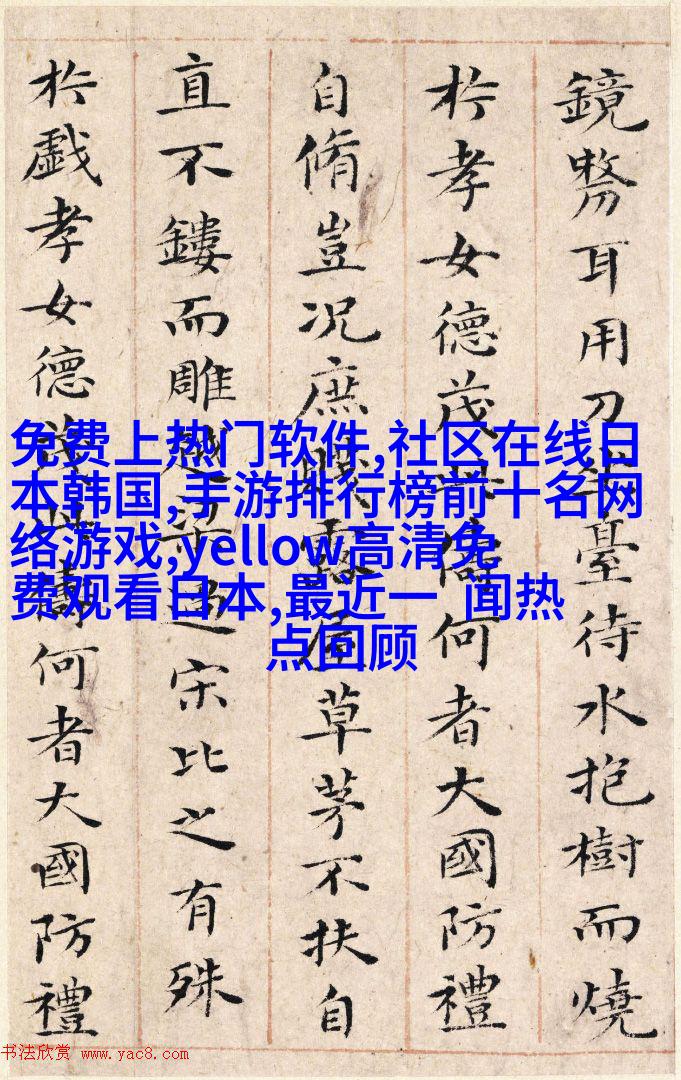 鏡剺耳用刀坐臺待水抱樹而燒
扵孝女德茂此儔何者大國防禮
自脩豈況庶賤露屋草茅不扶自
直不鏤而雕越梁過宋比之有殊
扵戲孝女德茂此儔何者大國防禮
免费上热门软件,社区在线日
本韩国,手游排行榜前十名网
络游戏,yellow高清免
费观看日本,最近一 闻热
点回顾
书法欣赏 www.yac8.com